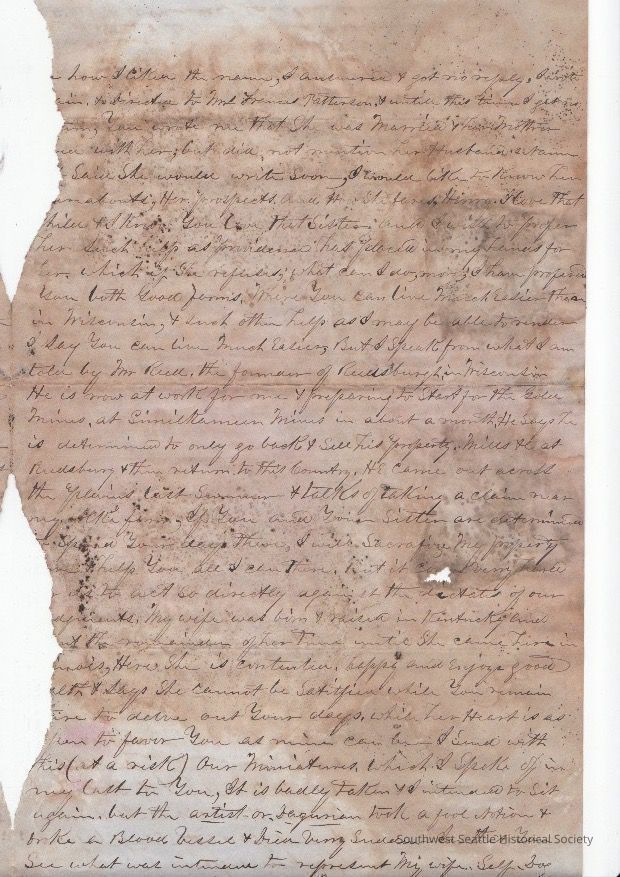 how I liked the name, I answered & got no reply, I wrote
again, & directed to Mrs Frances Patterson, & until this time I get no
You wrote me that She was Married & her Mother
with her, but did not mention her Husbands
Said She would write Soon, I would like to know her
Her prospects, And
You love that Sister, and I wish to profer
her Such help as Providence has placed in my hands for
her, which if She refuses, what can I do, more, I have profered
You both Good farms, Where You can live Much Easier than
in Wisconsin, & Such other help as I may be able to render
I Say You can live Much Easier, But I Speak from what I am
told by Mr Reed, the founder of Reedsburgh, in Wisconsin
He is now at work for me & preparing to Start for the Gold
Mines, at Similkameen Mines in about a month, He Says he
is determined to only go back & Sell his property, Mills & at
Reedsburg & then return to this Country, He came out across
the Plains last Summer & talks of taking a claim near
my farm, If You and Your Sister are determined
Your days there, I will Sacrafise My Property
& help You all I can there, But it
to act So directly against the dictets of our
My wife was born & raised in Kentucky and
the remainder of her Time until She came here in
Here She is contented, happy and Enjoys good
& Says She cannot be Satisfied while You remain
there to delve out Your days, while her Heart is as
open to favor You as mine can be, I Send with
this (at a risk) Our Miniatures, which I Spoke of in
my last to You, It is badly taken & I intended to Sit
again, but the artist took a fool Notion &
broke a Blood Vessel & Died Verry
See what was intended to represent My wife, Self,
Southwest Seattle Historical Society